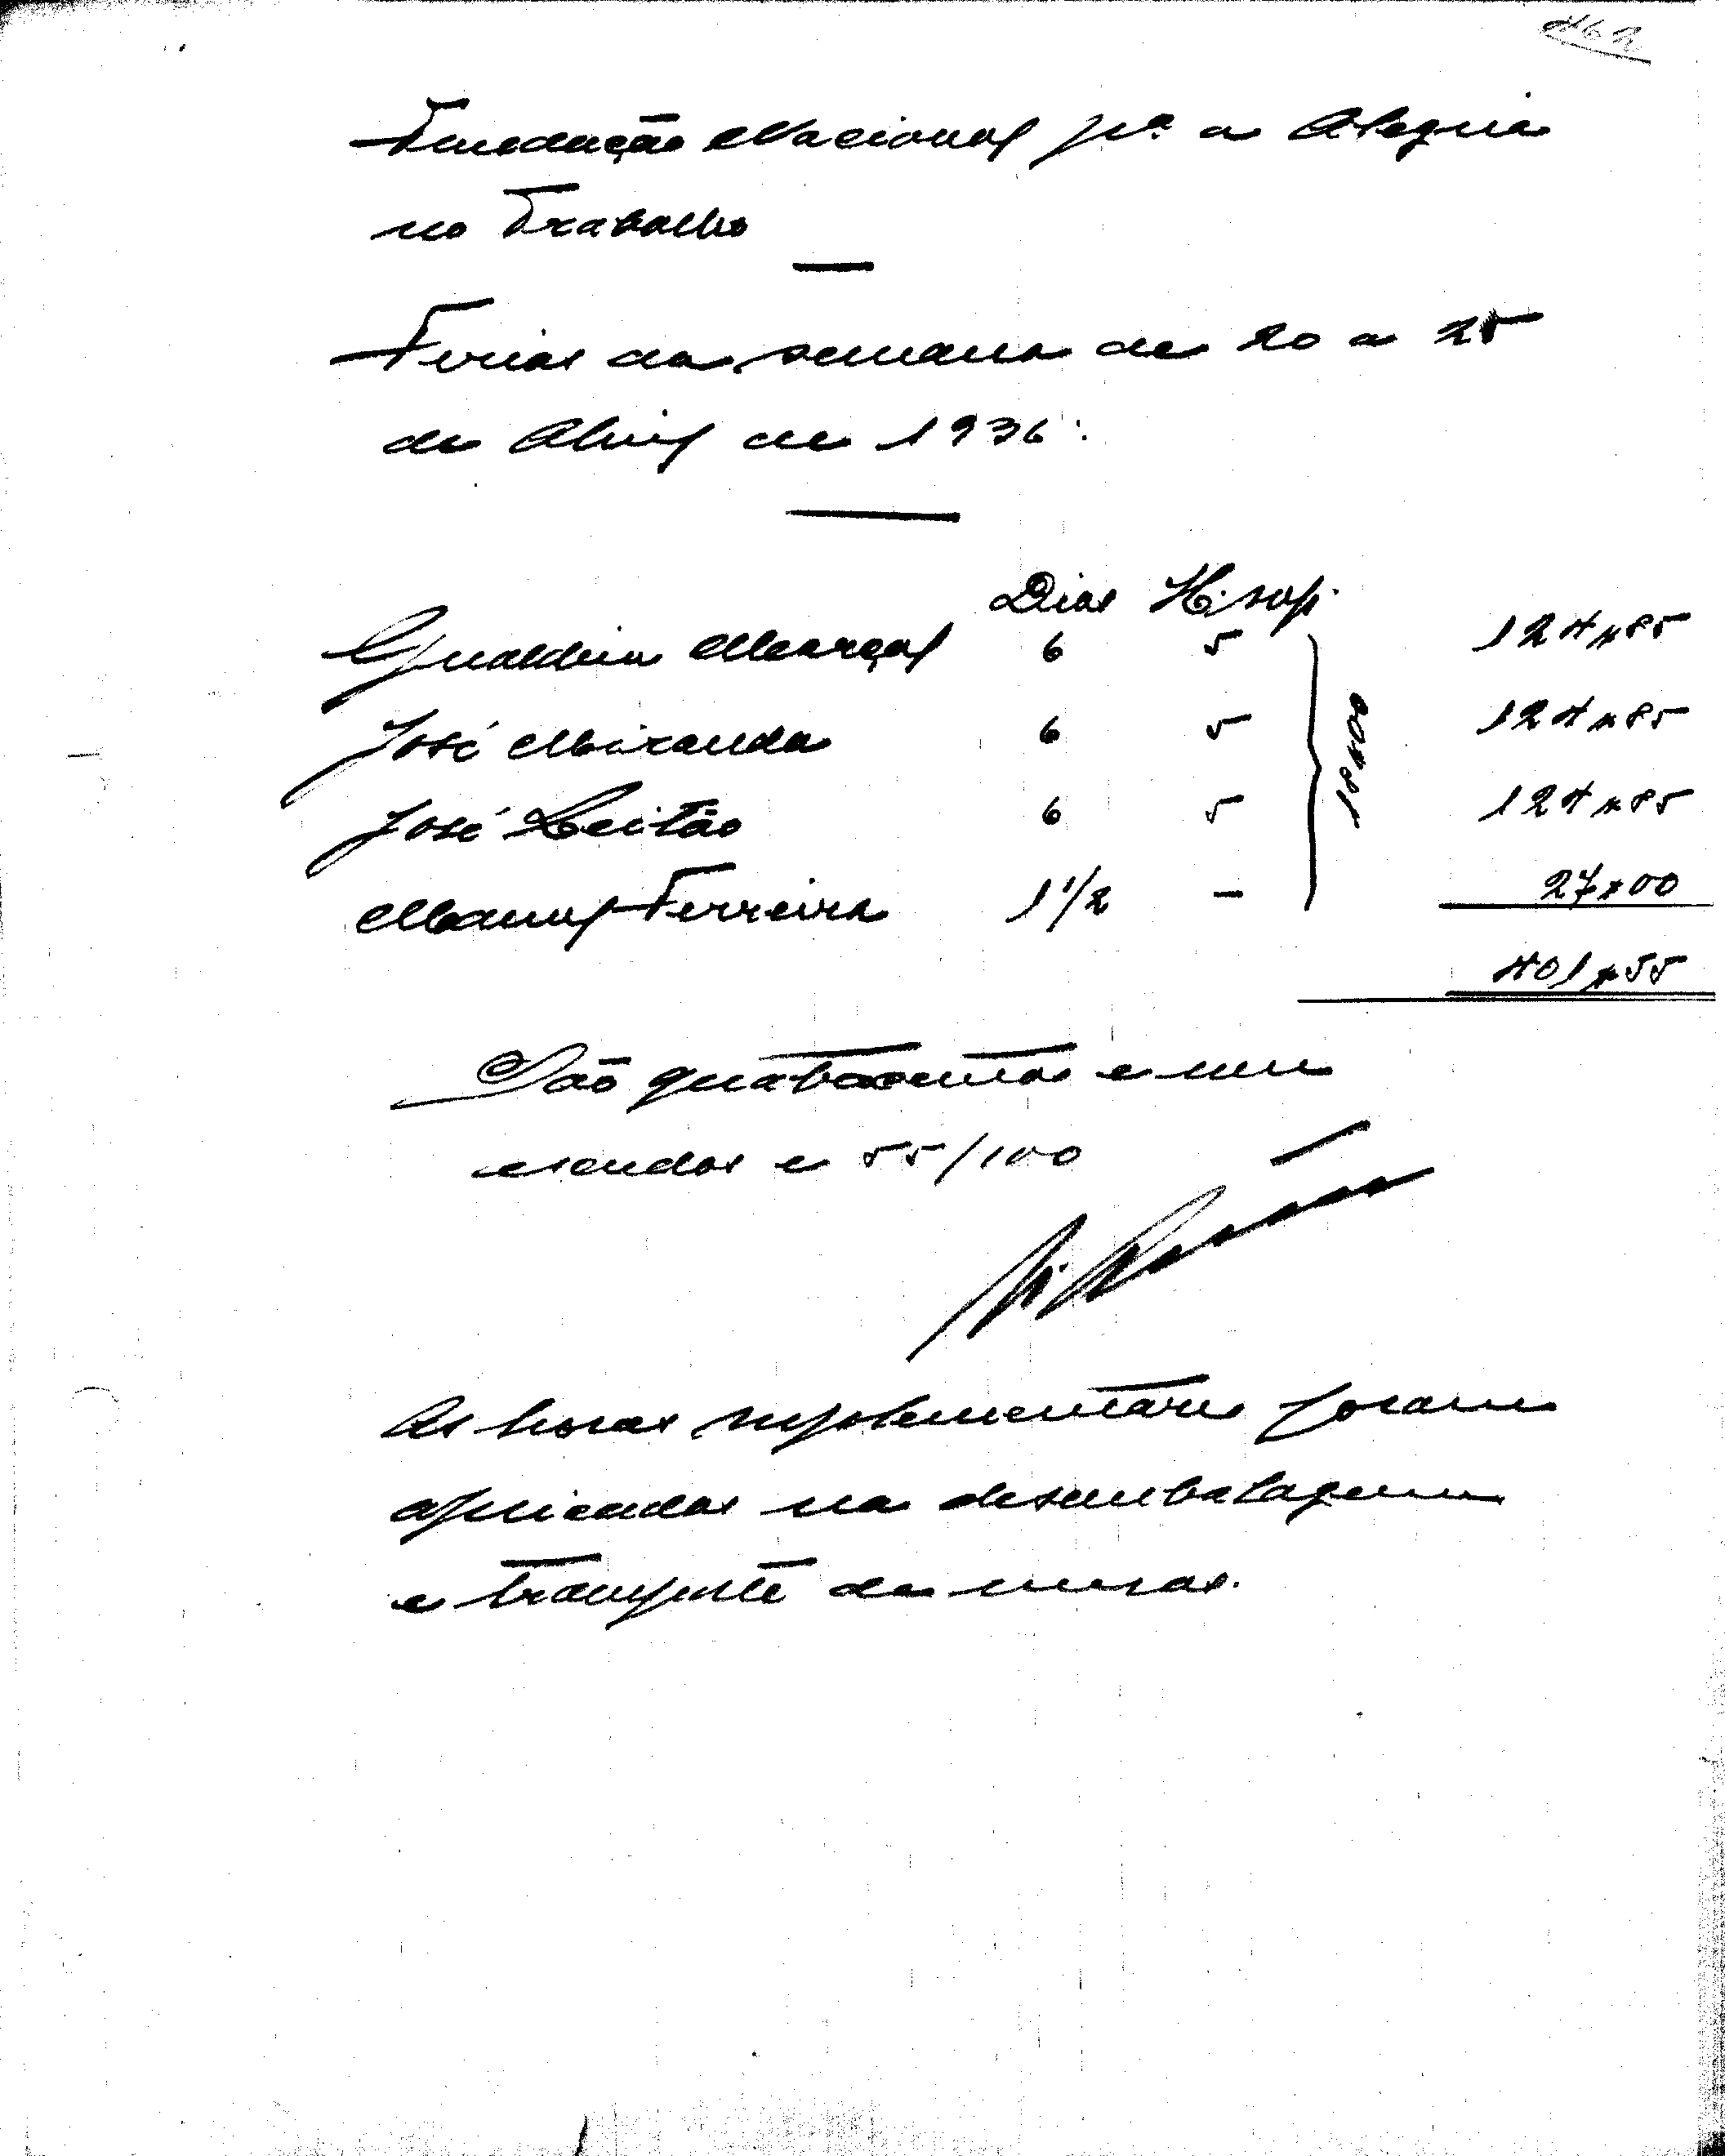 462
Fundação Nacional pª a Alegria
no Trabalho
Ferias da semana de 20 a 25
de Abril de 1936.
Dias H. sup.
Gualdim Marçal 6 5 124$85
José Miranda 6 5 124$85
18$00
José Leitão 6 5 124$85
Manuel Ferreira 1 1/2 — 27$00
401$55
São quatrocentos e um
escudos e 55/100
As horas suplementares foram
aplicadas na desembalagem
e transporte de mesas.